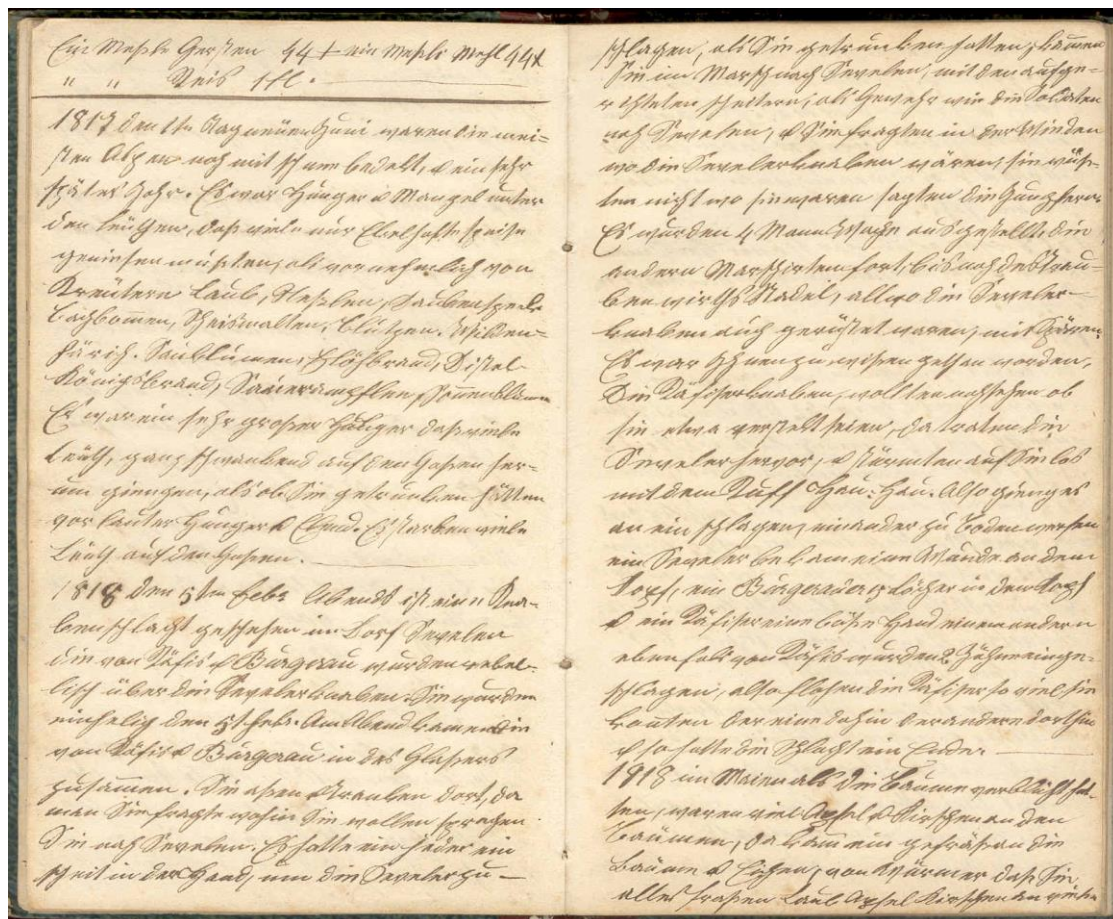 Ein Meßle Gersten 44 x ein Meßli Mehl 44 x
" " Reis 1 fl.
1817 den 1ten Tag neuen Juni waren die mei=
sten Alpen noch mit schnee bedekt, & ein sehr
spätes Jahr. Es war Hunger & Mangel unter
den leüthen, daß viele nur Ekelhafte speise
geniesen mußten, als vornehmlich von
Kreütern Laub, Neßelen,
Bachbommen, Blützgen. Wilden=
Saublumen, Flöhbrand, Distel
Königsbrand, Saurampflen, Sonnenblumen
Es war ein sehr großer Hunger daß viele
Leüth, ganz schwankend auf den Gaßen her=
um giengen, als ob Sie getrunken hätten
vor lauter Hunger & Elend. Es starben viele
Leüth auf den Gaßen.
1818 den 5ten Febr. Abends ist eine Kna=
benschlacht geschehen im Dorf Sevelen
die von Räfis & Burgerau wurden rebel=
lisch über die Sevelerknaben. Sie wurden
einhelig den 5t. Febr. Am Abend kamen die
von Räfis & Burgerau in des Glasers
zusammen. Sie aßen Trauben dort, da
man Sie fragte wohin Sie wollen sprachen
Sie nach Sevelen. Es hatte ein jeder ein
scheit in der Hand, um die Seveler zu
schlagen, als Sie getrunken hatten, kamen
Sie im Marsch nach Sevelen, mit den aufge=
richteten scheitern, als Gewehr wie die Soldaten
nach Sevelen, & Sie fragten in der Winden
wo die Sevelerknaben wären, sie wüs=
ten nicht wo sie waren sagten die Jungfern.
Es wurden 4 Mann Wache ausgestellt, die
andern Marschirten fort, bis nach des Trau=
benwirths Stadel, allwo die Seveler=
knaben auch gerüstet waren, mit
Es war ihnen zu wißen gethan worden.
Die Räfiserknaben, wollten nachsehen ob
sie etwa verstekt seien, da traten die
Seveler hervor, & stürmten auf Sie los
mit dem Ruff Hau: Hau. Also gieng es
an ein schlagen, einander zu boden werfen
ein Seveler bekam eine Wunde an dem
Kopf, ein Burgerauer 5 löcher in dem Kopf
& ein Räfiser eine böße Hand einem andern
ebenfals von Räfis wurden 2 Zähne einge=
schlagen, also flohen die Räfiser so viel sie
konnten der eine dahin der andere dorthin
& so hatte die Schlacht ein Ende.
1918 im Maien als die Bäume verblüht hat=
ten, waren viel Apfel & Kirschen an den
Bäumen, da kam ein gefräs an die
Bäume & Eichen, von Würmer daß Sie
alles fraßen Laub Apfel Kirschen an vielen